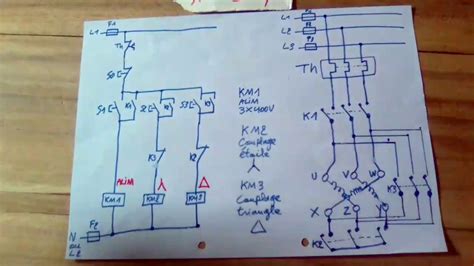 L1
F1
Th
S0
S1
K1
S2
K2
S3
K3
K3
K2
ALIM
KM1
KM2
KM3
N
ou
L2
F2
KM1
ALIM
3x400V
KM2
Couplage
étoile
KM3
Couplage
triangle
L1
L2
L3
F1
F2
F3
Th
K1
U
V
W
K3
X
Z
Y
K2